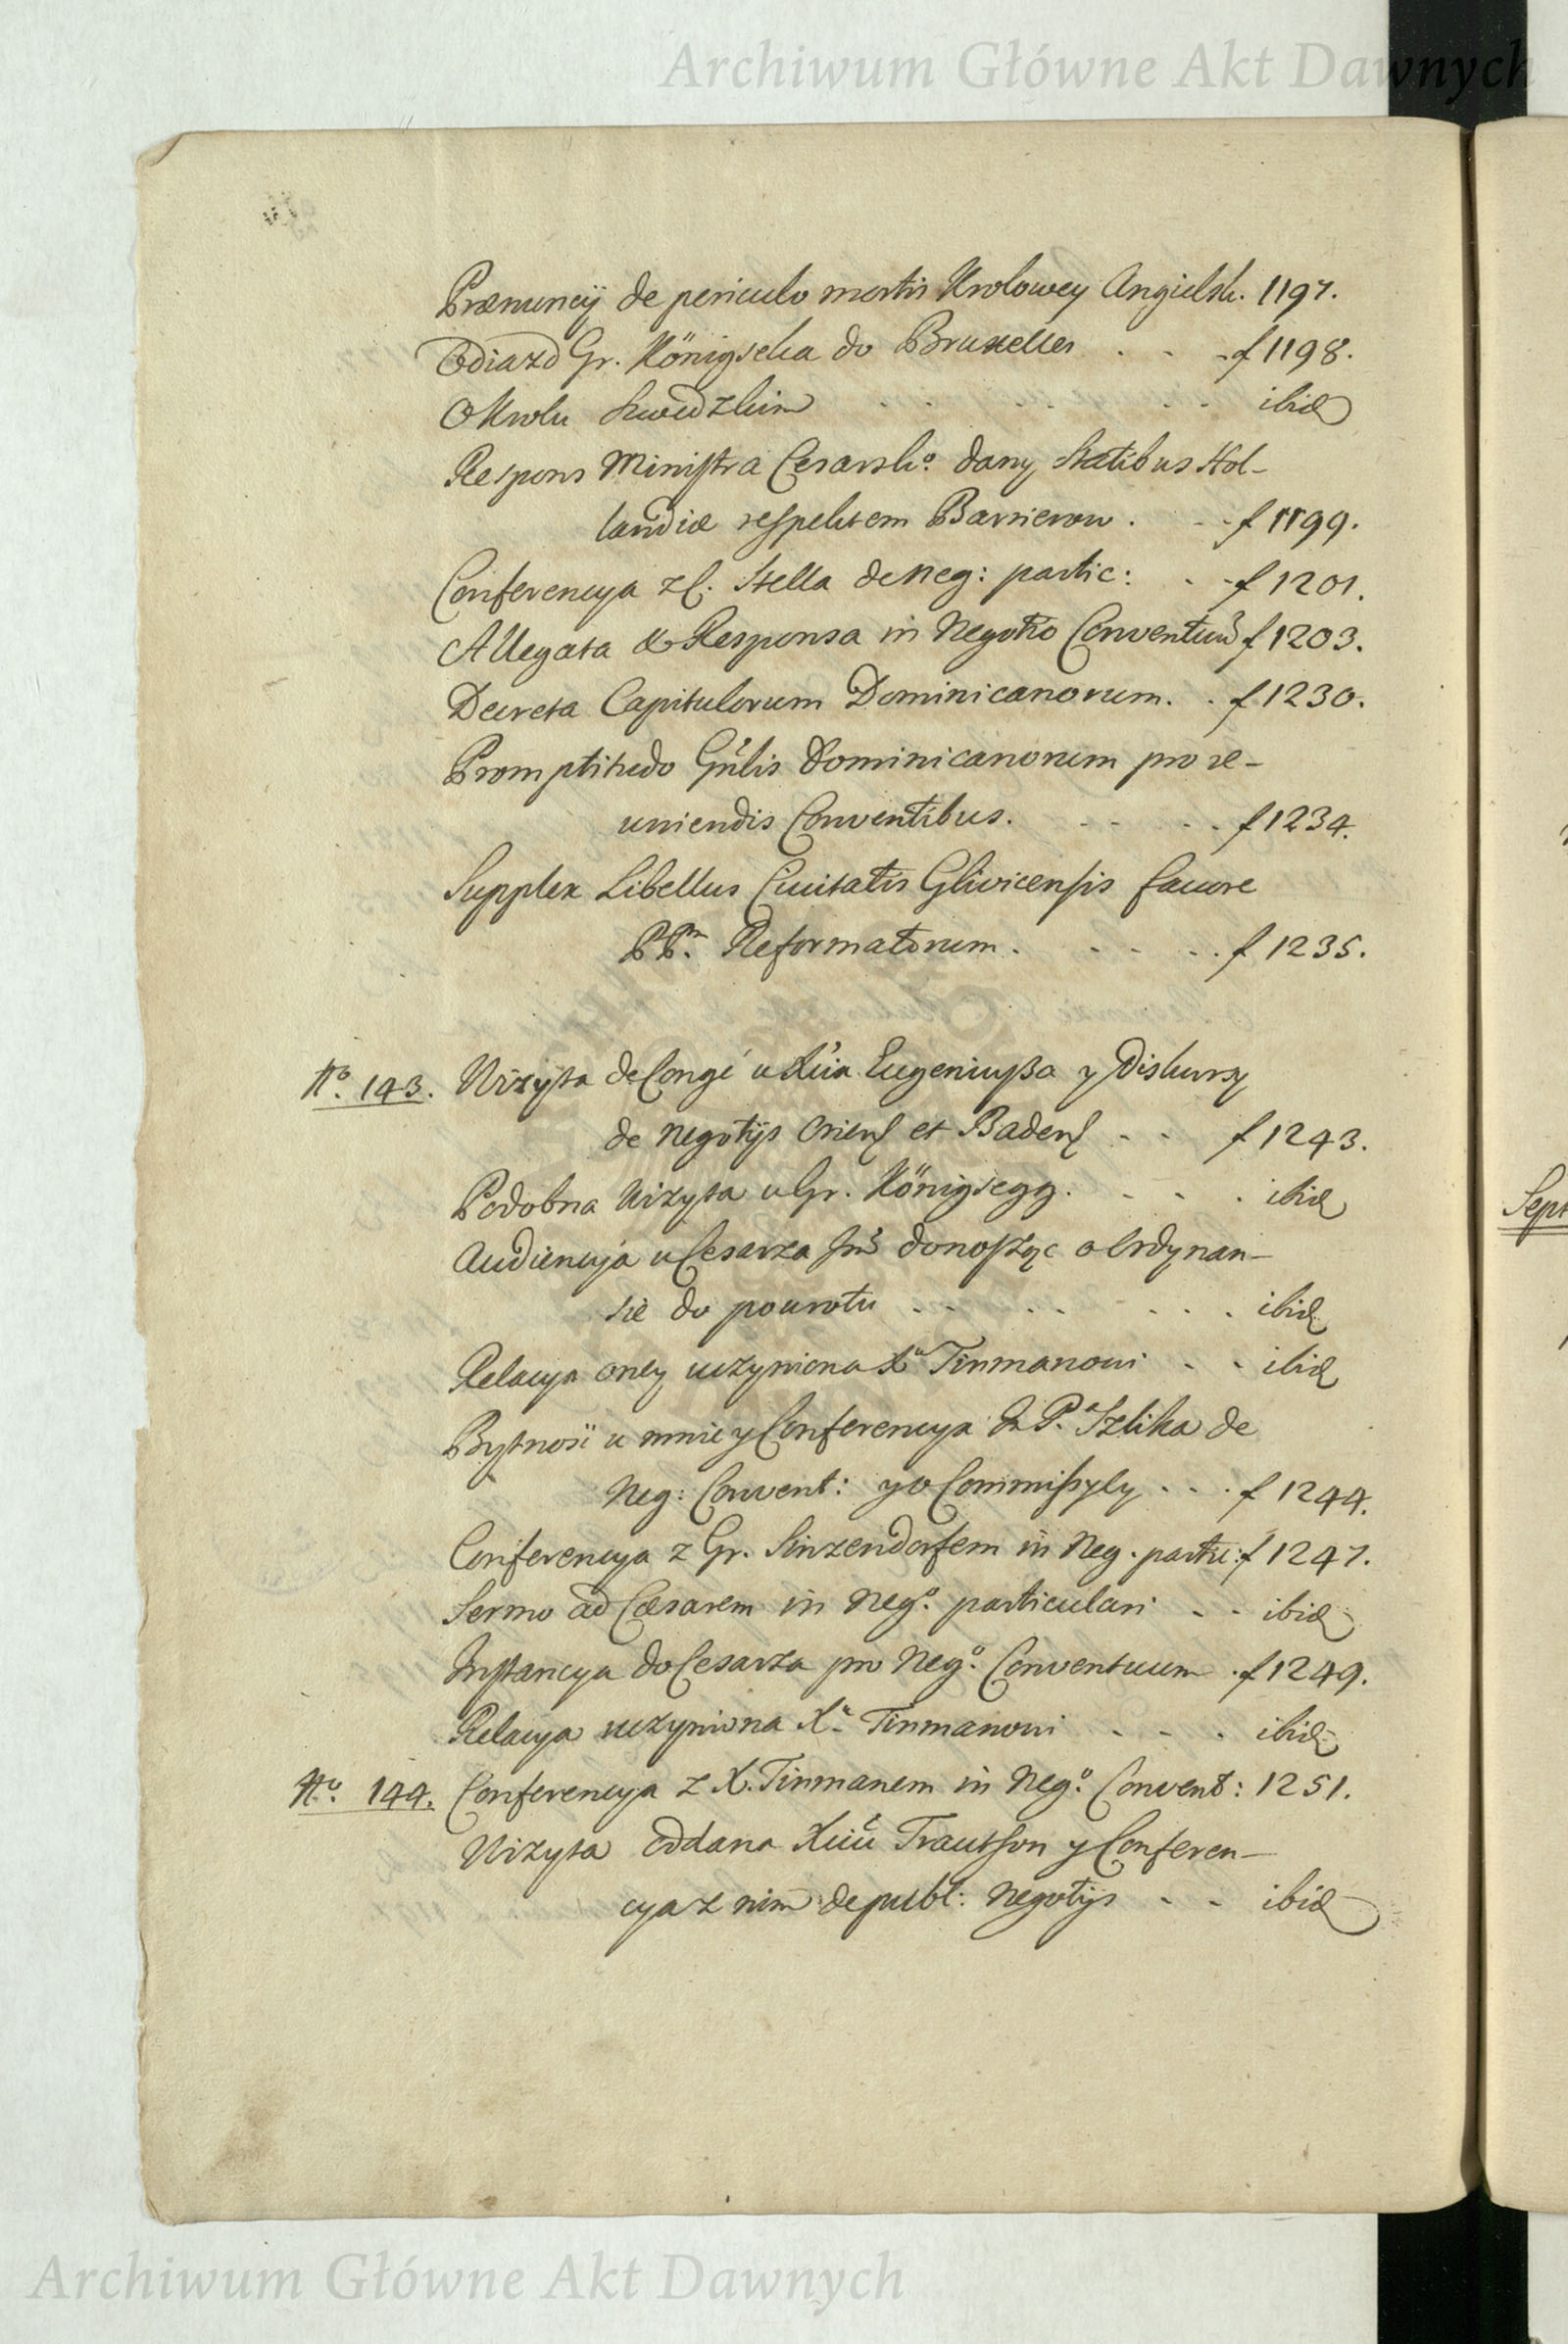 Archiwum Główne Akt Dawnych
Prænuncÿ de periculo mortis Krolowey Angielsk. 1197.
Odiazd Gr. Königseka do Bruxelles . . . f 1198.
O Krolu Szwedzkim . . . . . . ibid
Respons Ministra Cesarsko. dany Statibus Hol-
landiæ respektem Barrierow . . . f 1199.
Conferencya z C. Stella de neg: partic: . . f 1201.
Allegata & Responsa in Negotio Conventuũ f 1203.
Decreta Capitulorum Dominicanorum . . f 1230.
Promptitudo Gnlis Dominicanorum pro re-
uniendis Conventibus . . . . . f 1234.
Supplex Libellus Civitatis Glivicensis favore
PPm. Reformatorum . . . . . f 1235.
No. 143. Wizyta de Congé u Xcia Eugeniusza y Diskursy
de negotÿs Oriens et Badens . . f 1243.
Podobna Wizyta u Gr. Königsegg . . . . ibid
Audiencya u Cesarza donosząc o Ordynan-
sie do powrotu . . . . . . . ibid
Relacya oney uczyniona Xu Tinmanowi . . ibid
Bytnosć u mnie y Conferencya P.a Szlika de
Neg: Convent: y o Commissyly . . . f 1244.
Conferencya z Gr. Sinzendorfem in Neg. partic: f 1247.
Sermo ad Cæsarem in nego. particulari . . ibid
Instancya do Cesarza pro Nego. Conventuum . f 1249.
Relacya uczyniona Xu Tinmanowi . . . ibid
No. 144. Conferencya z X. Tinmanem in Nego. Convent: 1251.
Wizyta oddana Xciu Trautson y Conferen-
cya z nim de publ: negotÿs . . ibid
Sept
Archiwum Główne Akt Dawnych